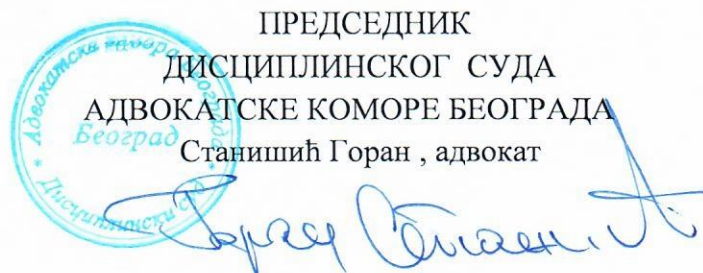 ПРЕДСЕДНИК
ДИСЦИПЛИНСКОГ СУДА
АДВОКАТСКЕ КОМОРЕ БЕОГРАДА
Станишић Горан , адвокат
Адвокатска комора Београда
Београд
Дисциплински суд
Горан